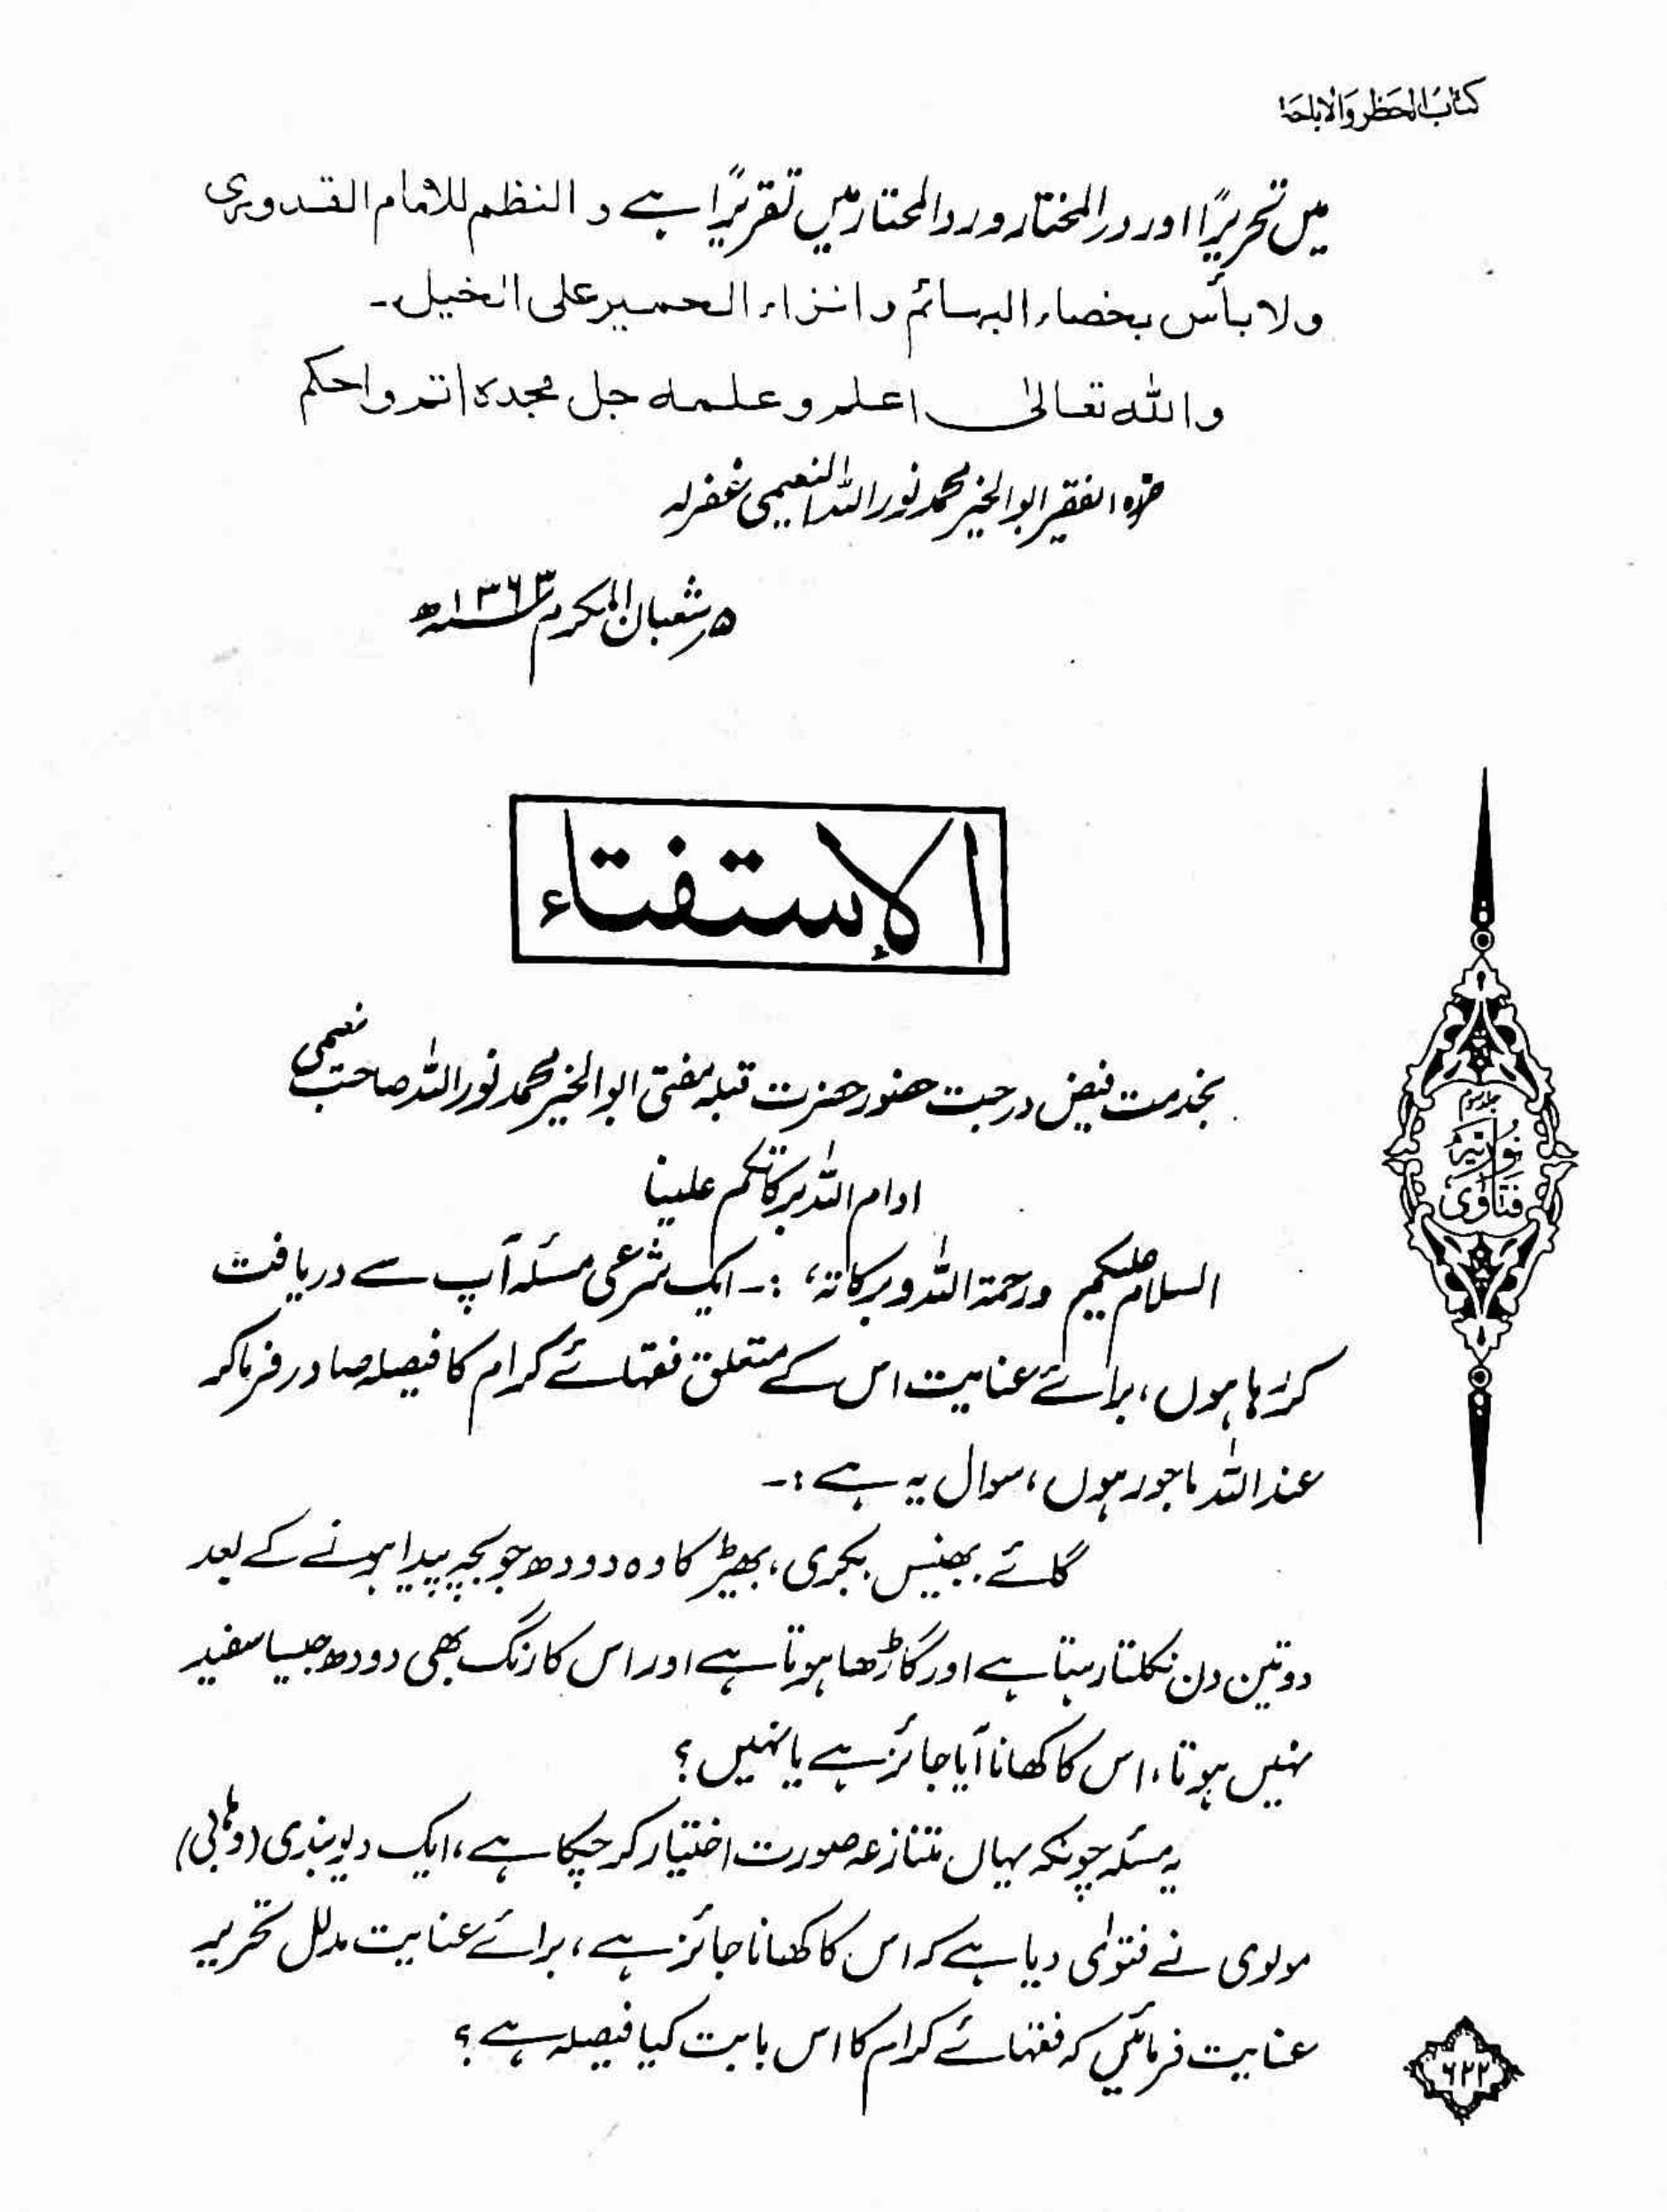 کتاب الحظر والاباحۃ
میں تحریرًا اور در المختار و رد المحتار میں تقریرًا ہے و النظم للامام القدوری
ولا بأس بخصاء البہائم و انزاء الحمیر علی الخیل۔
واللہ تعالیٰ اعلم و علمہ جل مجدہ اتم واحکم
حررہ الفقیر ابوالخیر محمد نور اللہ النعیمی غفرلہ
۵ر شعبان المکرم ۱۳۶۳ھ
الإستفتاء
بخدمت فیض درجت حضور حضرت قبلہ مفتی ابوالخیر محمد نور اللہ صاحب نعیمی
ادام اللہ برکاتکم علینا
السلام علیکم ورحمۃ اللہ وبرکاتہ، :۔ ایک شرعی مسئلہ آپ سے دریافت
کر رہا ہوں، برائے عنایت اس کے متعلق فقہائے کرام کا فیصلہ صادر فرما کر
عند اللہ ماجور ہوں، سوال یہ ہے :۔
گائے، بھینس، بکری، بھیڑ کا وہ دودھ جو بچہ پیدا ہونے کے بعد
دو تین دن نکلتا رہتا ہے اور گاڑھا ہوتا ہے اور اس کا رنگ بھی دودھ جیسا سفید
نہیں ہوتا، اس کا کھانا آیا جائز ہے یا نہیں؟
یہ مسئلہ چونکہ یہاں متنازعہ صورت اختیار کر چکا ہے، ایک دیوبندی (وہابی)
مولوی نے فتوٰی دیا ہے کہ اس کا کھانا جائز ہے، برائے عنایت مدلل تحریر
عنایت فرمائیں کہ فقہائے کرام کا اس بابت کیا فیصلہ ہے؟
جلد سوم
نوریہ
فتاوٰی
۶۲۲